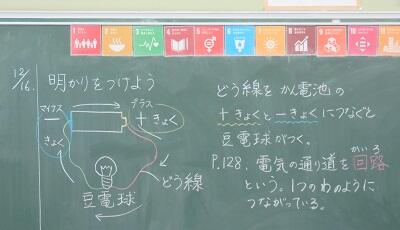 1 2 3 4 5 6 7 8 9 10
12/16.
明かりをつけよう
マイナス
ー
きょく
プラス
＋きょく
どう線
豆電球
どう線をかん電池の
＋きょくとーきょくにつなぐと
豆電球がつく。
P.128、電気の通り道を回路
かいろ
という。1つのわのように
つながっている。